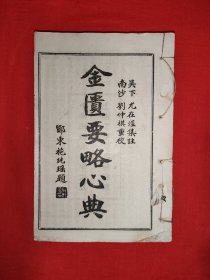 吳下 尤在涇集註
南沙 劉仲棋重校
金匱要略心典
鄞東施兆瑤題